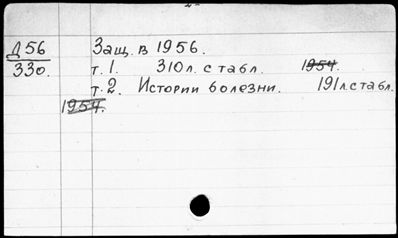 Д 56 Защ. в 1956.
330. т. 1. 310 л. с табл. 1954.
т. 2. Истории болезни. 191 л. с табл.
1954.